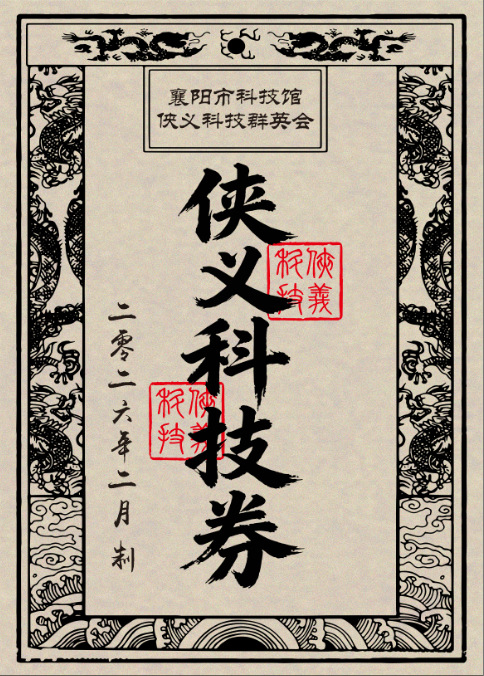 襄阳市科技馆
侠义科技群英会
侠义科技券
俠義
科技
俠義
科技
二零二六年二月制